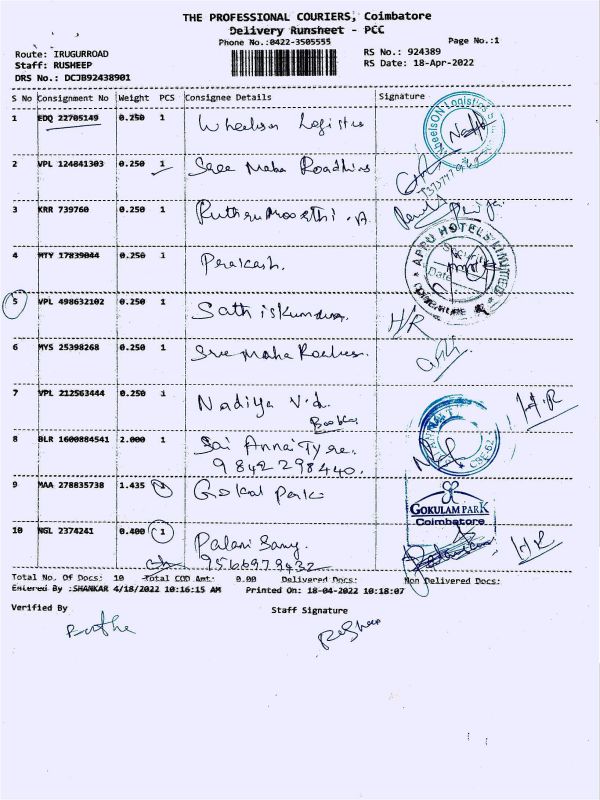 THE PROFESSIONAL COURIERS, Coimbatore
Delivery Runsheet - PCC
Phone No.:0422-3505555
Page No.:1
Route: IRUGURROAD
RS No.: 924389
Staff: RUSHEEP
RS Date: 18-Apr-2022
DRS No.: DCJB92438901
S No Consignment No Weight PCS Consignee Details Signature
1 EDQ 22705149 0.250 1 Wheelson Logistics
2 VPL 124841303 0.250 1 Sree Maha Roadlines
3 KRR 739760 0.250 1 A
4 MTY 17839044 0.250 1 Prakash.
APPU HOTELS LIMITED
Security
Date
5 VPL 498632102 0.250 1 Sathiskumar.
H/R
6 MYS 25398268 0.250 1 Sree Maha
7 VPL 212563444 0.250 1 Nadiya V.d.
H.R
8 BLR 1600884541 2.000 1 Sai Annai Tyre.
9842298440.
9 MAA 278835738 1.435 1 Gokul Park
GOKULAM PARK
Coimbatore
10 NGL 2374241 0.400 1 Palani Samy
9566979432
H.R
Total No. Of Docs: 10 Total COD Amt: 0.00 Delivered Docs: Non Delivered Docs:
Entered By :SHANKAR 4/18/2022 10:16:15 AM Printed On: 18-04-2022 10:18:07
Verified By Staff Signature